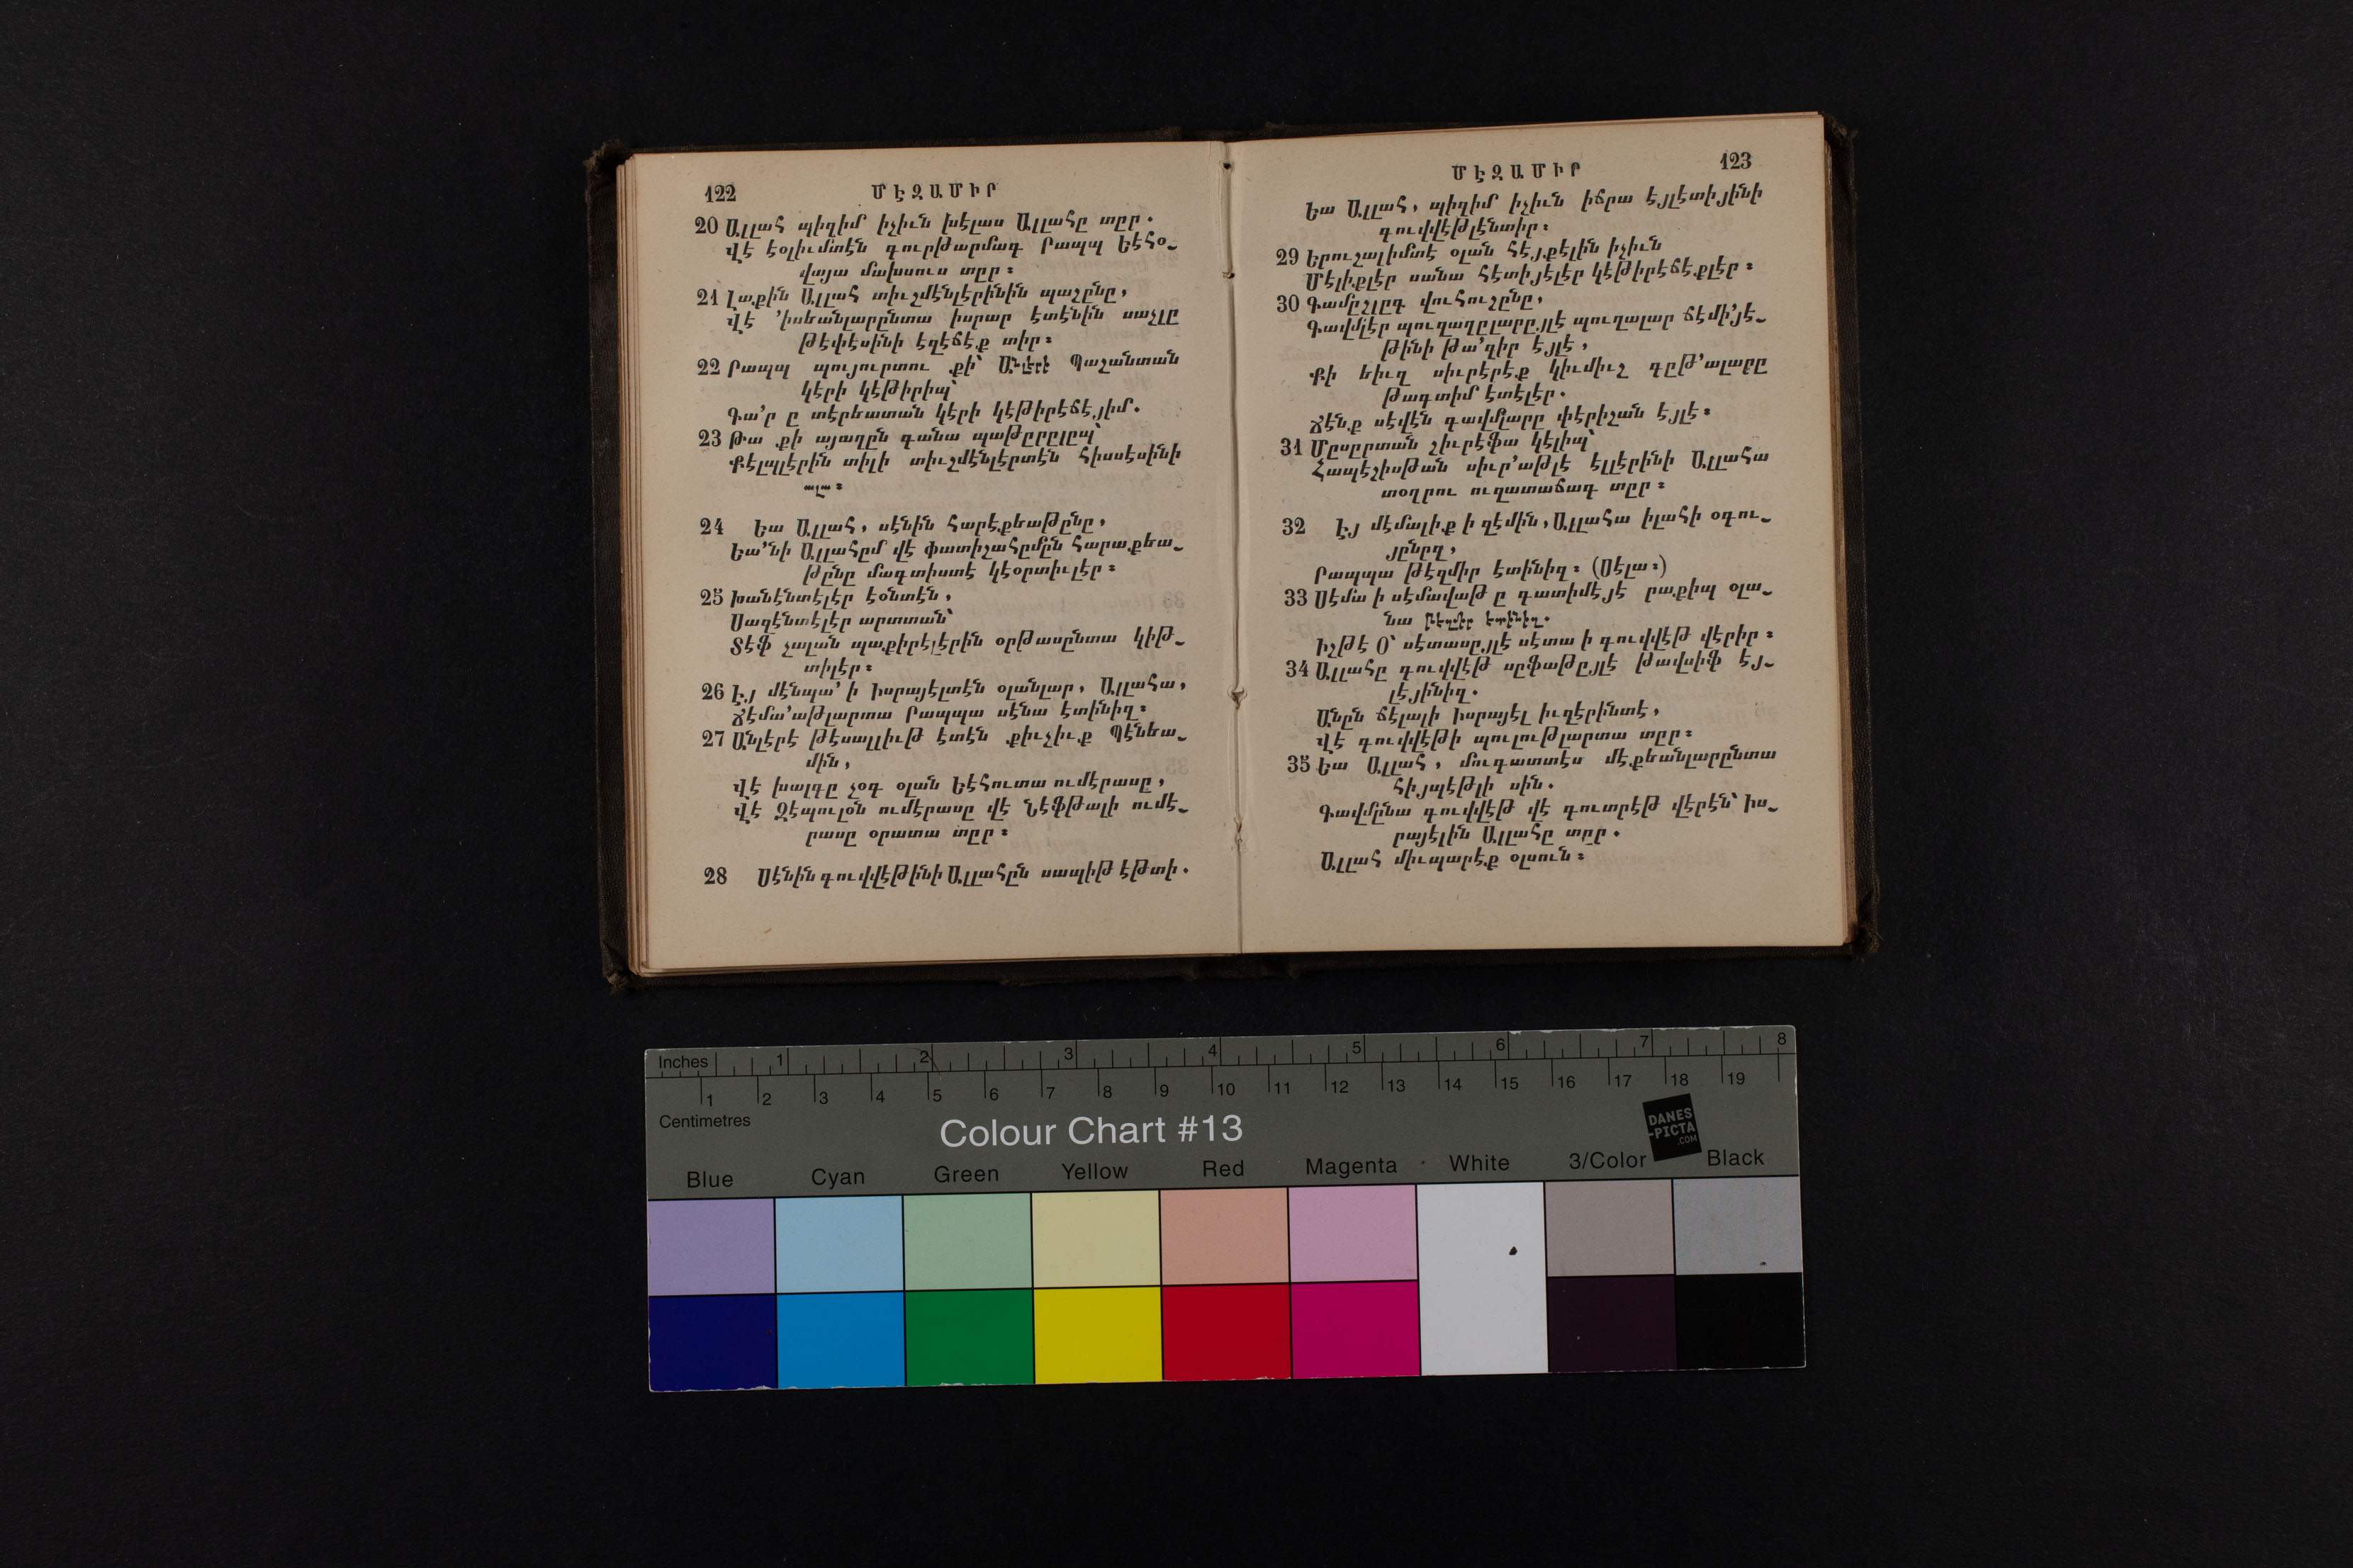 122 ՄԷԶԱՄԻՐ
20 Ալլահ պիզիմ իչիւն խէլաս Ալլահը տըր.
Վէ էօլիւմտէն գուրթարմագ Րապպ Եէհօ-
վայա մախսուս տըր։
21 Լաքին Ալլահ տիւշմէնլէրինին պաշընը,
Վէ ՚իսեանլարընտա իսրար էտէնին սաչլը
թէփէսինի էզէճէք տիր։
22 Րապպ պույուրտու քի՝ Անլէրէ Պաշանտան
կէրի կէթիրիպ՝
Գա՚ր ը տէրեատան կէրի կէթիրէճէյիմ.
23 Թա քի այաղըն գանա պաթըրըլըպ՝
Քէլպլէրին տիլի տիւշմէնլէրտէն հիսսէսինի
ալա։
24 Եա Ալլահ, սէնին հարէքեաթընը,
Եա՚նի Ալլահըմ վէ փատիշահըմըն հարաքեա-
թընը մագտիստէ կէօրտիւլէր։
25 Խանէնտէլէր էօնտէն,
Սազէնտէլէր արտտան՝
Տէֆ չալան պաքիրէլէրին օրթասընտա կիթ-
տիլէր։
26 Էյ մէնպա՚ ի Իսրայէլտէն օլանլար, Ալլահա,
Ճէմա՚աթլարտա Րապպա սէնա էտինիզ։
27 Անլէրէ թէսալլիւթ էտէն քիւչիւք Պէնեա-
մին,
Վէ խալգը չօգ օլան Եէհուտա ումէրասը,
Վէ Զէպուլօն ումէրասը վէ Նէֆթալի ումէ-
րասը օրատա տըր։
28 Սէնին գուվվէթինի Ալլահըն սապիթ էթտի.
ՄԷԶԱՄԻՐ 123
Եա Ալլահ, պիզիմ իչիւն իճրա էյլէտիյինի
գուվվէթլէնտիր։
29 Երուշալիմտէ օլան հէյքէլին իչիւն
Մէլիքլէր սանա հէտիյէլէր կէթիրէճէքլէր։
30 Գամըշլըգ վուհուշընը,
Գավմլէր պուզաղըլարըյլէ պուղալար ճէմի՚յէ-
թինի թա՚զիր էյլէ,
Քի եիւզ սիւրէրէք կիւմիւշ գըթ՚ալարը
թագտիմ էտէլէր.
Ճէնք սէվէն գավմլարը փէրիշան էյլէ։
31 Մըսըրտան շիւրէֆա կէլիպ՝
Հապէշիսթան սիւր՚աթլէ էլլէրինի Ալլահա
տօղրու ուզատաճագ տըր։
32 Էյ մէմալիք ի զէմին, Ալլահա իլահի օգու-
յընըզ,
Րապպա թէզմիր էտինիզ։ (Սէլա։)
33 Սէմա ի սէմավաթ ը գատիմէյէ րաքիպ օլա-
նա թէզմիր էտինիզ.
Իշթէ Օ՝ սէտասըյլէ սէտա ի գուվվէթ վէրիր։
34 Ալլահը գուվվէթ սըֆաթըյլէ թավսիֆ էյ-
լէյինիզ.
Անըն ճէլալի Իսրայէլ իւզէրինտէ,
Վէ գուվվէթի պուլութլարտա տըր։
35 Եա Ալլահ, մուգատտէս մէքեանլարընտա
հիյպէթլի սին.
Գավմընա գուվվէթ վէ գուտրէթ վէրէն՝ Իս-
րայէլին Ալլահը տըր.
Ալլահ միւպարէք օլսուն։
Inches 1 2 3 4 5 6 7 8
1 2 3 4 5 6 7 8 9 10 11 12 13 14 15 16 17 18 19
Centimetres
Colour Chart #13
DANES
-PICTA
.COM
Blue Cyan Green Yellow Red Magenta White 3/Color Black